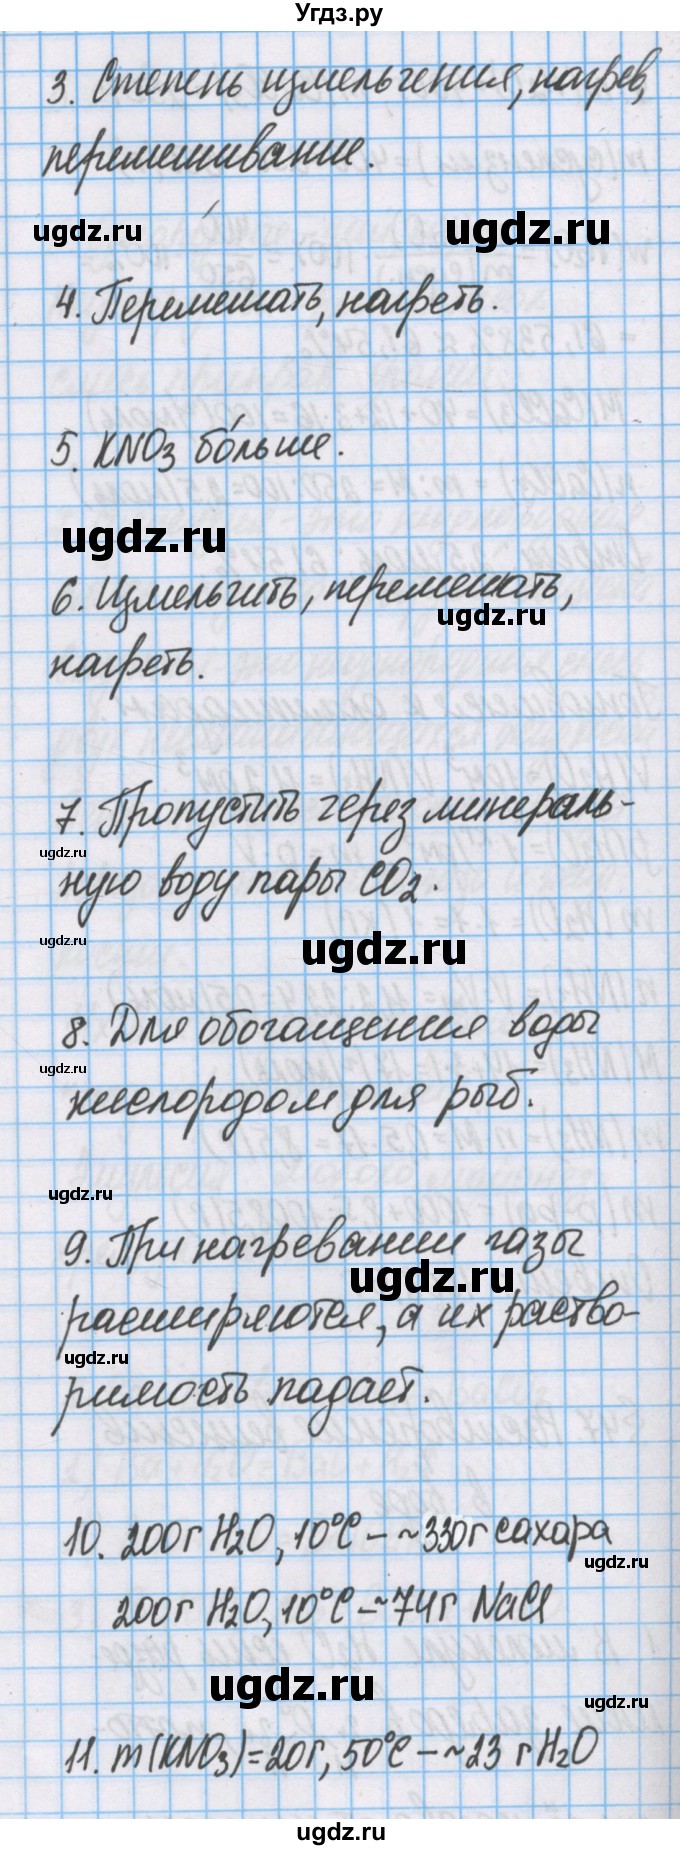 Угдз.ру
3. Степень измельчения, нагрев,
перемешивание.
ugdz.ru ugdz.ru
4. Перемешать, нагреть.
5. KNO3 бо́льше.
ugdz.ru
6. Измельчить, перемешать,
ugdz.ru
нагреть.
7. Пропустить через минераль-
ugdz.ru
ную воду пары CO2.
ugdz.ru ugdz.ru
8. Для обогащения воды
ugdz.ru
кислородом для рыб.
ugdz.ru
9. При нагревании газы
ugdz.ru
расширяются, а их раство-
ugdz.ru
римость падает.
10. 200г H2O, 10°C – ~330г сахара
ugdz.ru
200г H2O, 10°C – ~74г NaCl
ugdz.ru ugdz.ru
11. m(KNO3)=20г, 50°C – ~23 г H2O
ugdz.ru